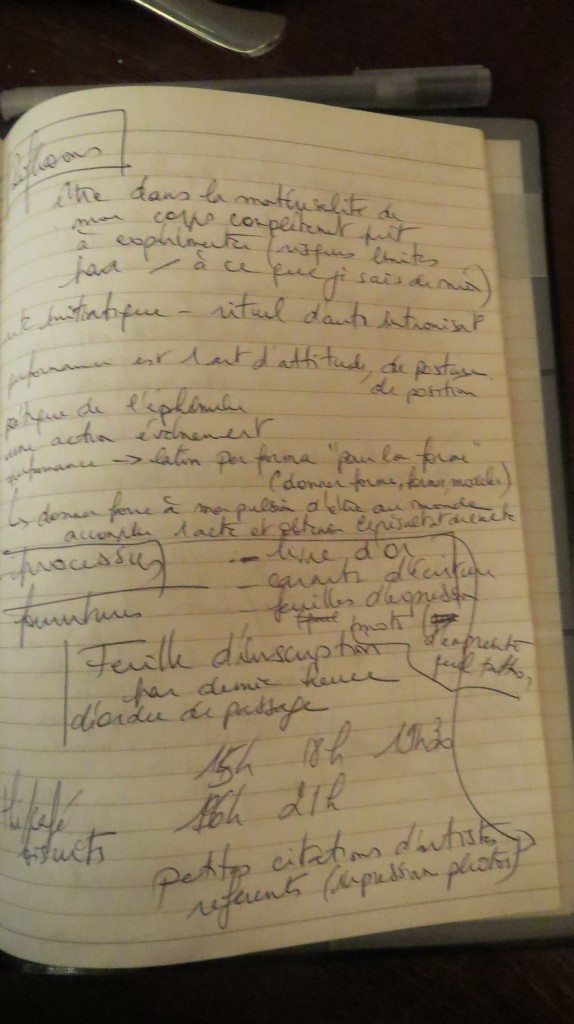 Réflexions
être dans la matérialité de
mon corps complètement prêt
à expérimenter (risques limites
à ce que je sais de moi)
initiatique – rituel d'auto intronisat°
performance est 1 art d'attitude, de posture
de position
de l'éphémère
une action évènement
performance → latin per forma "pour la forme"
(donner forme, former, modeler)
↳ donner forme à ma pulsion d'être au monde
accomplir 1 acte et obtenir
processus – livre d'or
– carnets d'écriture
fournitures – feuilles d'expression
mots
d'empreinte
Feuille d'inscription
par demie heure
d'ordre de passage
15h 18h 19h30
16h 21h
thé café
biscuits
petites citations d'artistes
référents (impression photos)